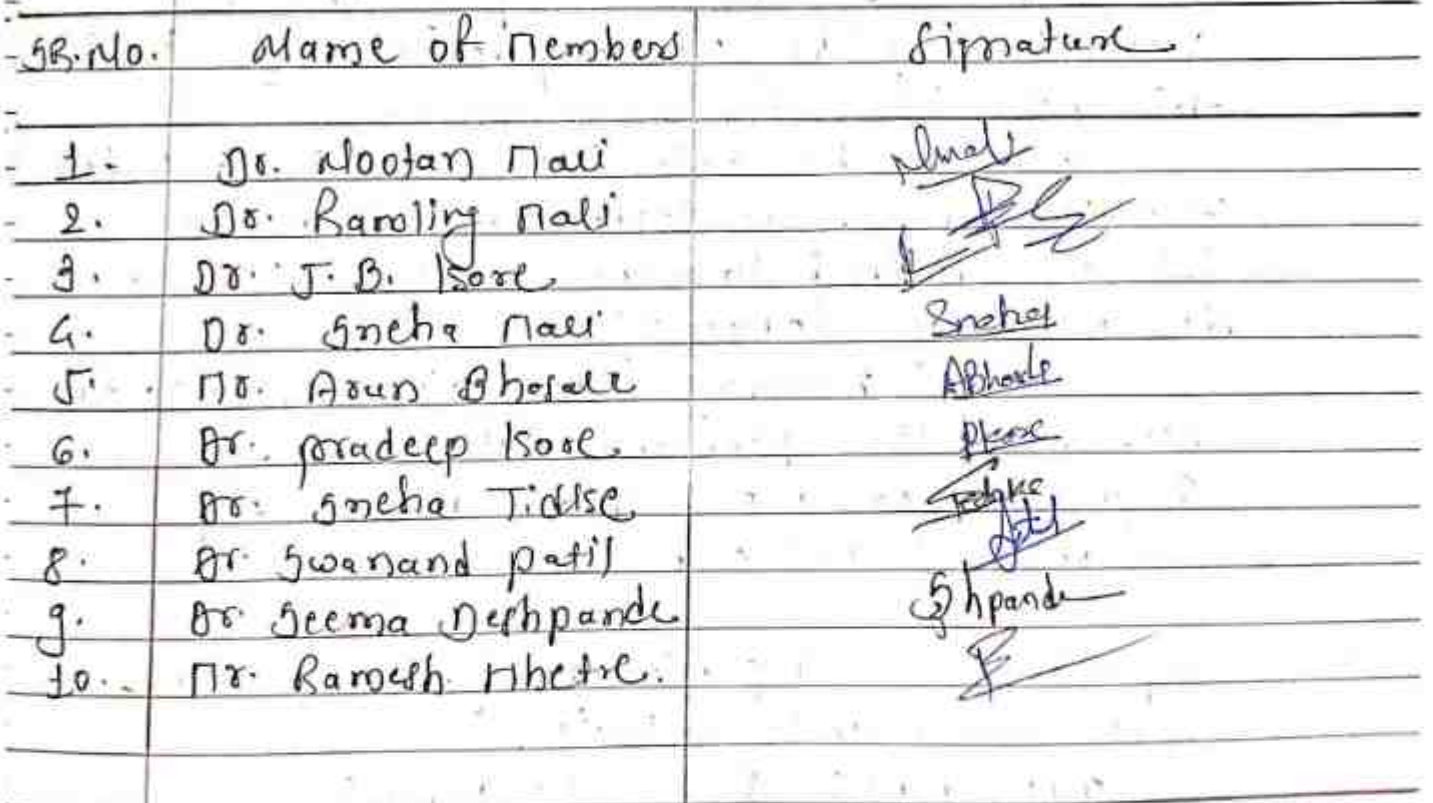 SR.No. Name of Members Signature
1. Dr. Nootan Mali Nmali
2. Dr. Ramling Mali
3. Dr. J. B. Kore
4. Dr. Sneha Mali Sneha
5. Mr. Arun Bhosale ABhosle
6. Dr. pradeep Kore. pkore
7. Dr. Sneha Tidke
8. Dr. Swanand patil
9. Dr Seema Deshpande Shpande
10. Mr. Ramesh Mhetre.